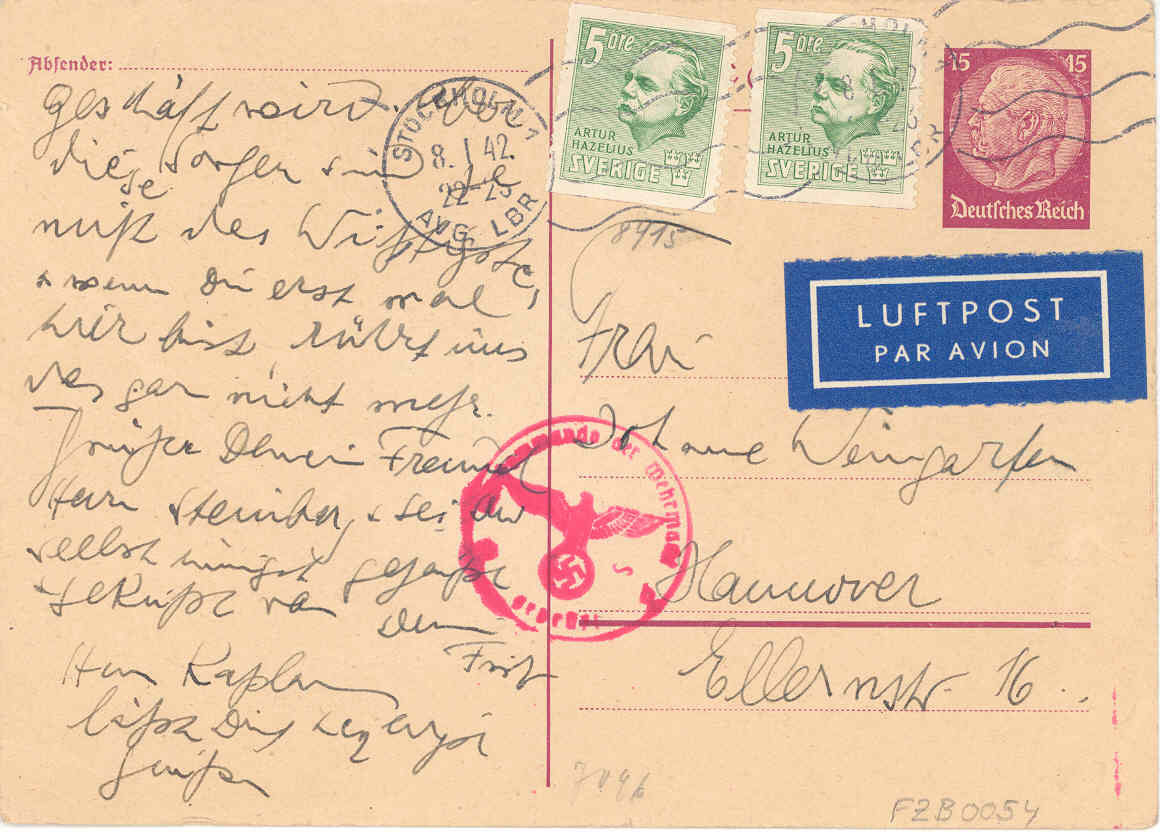 Absender:
Geschäft wird
die Sorgen sin
se
nicht das Wichtigste,
+ wenn Du erst mal
hier bist rührt uns
das gar nicht mehr.
Grüsse Deinen Freund
Herrn Steinberg, + sei Du
selbst innigst gegrüsst
+ geküsst von
Deinem
Fritz
Herr Kaplan
lässt Dich herzlich
grüssen
STOCKHOLM 1
8. 1 42
22-23
AVG. LBR
5 öre
ARTUR
HAZELIUS
SVERIGE
5 öre
ARTUR
HAZELIUS
SVERIGE
15 15
Deutsches Reich
LUFTPOST
PAR AVION
8915
Frau
Johanne Weingarten
Hannover
Ellernstr. 16.
kommando der Wehrmacht
geprüft
b
FZB0054